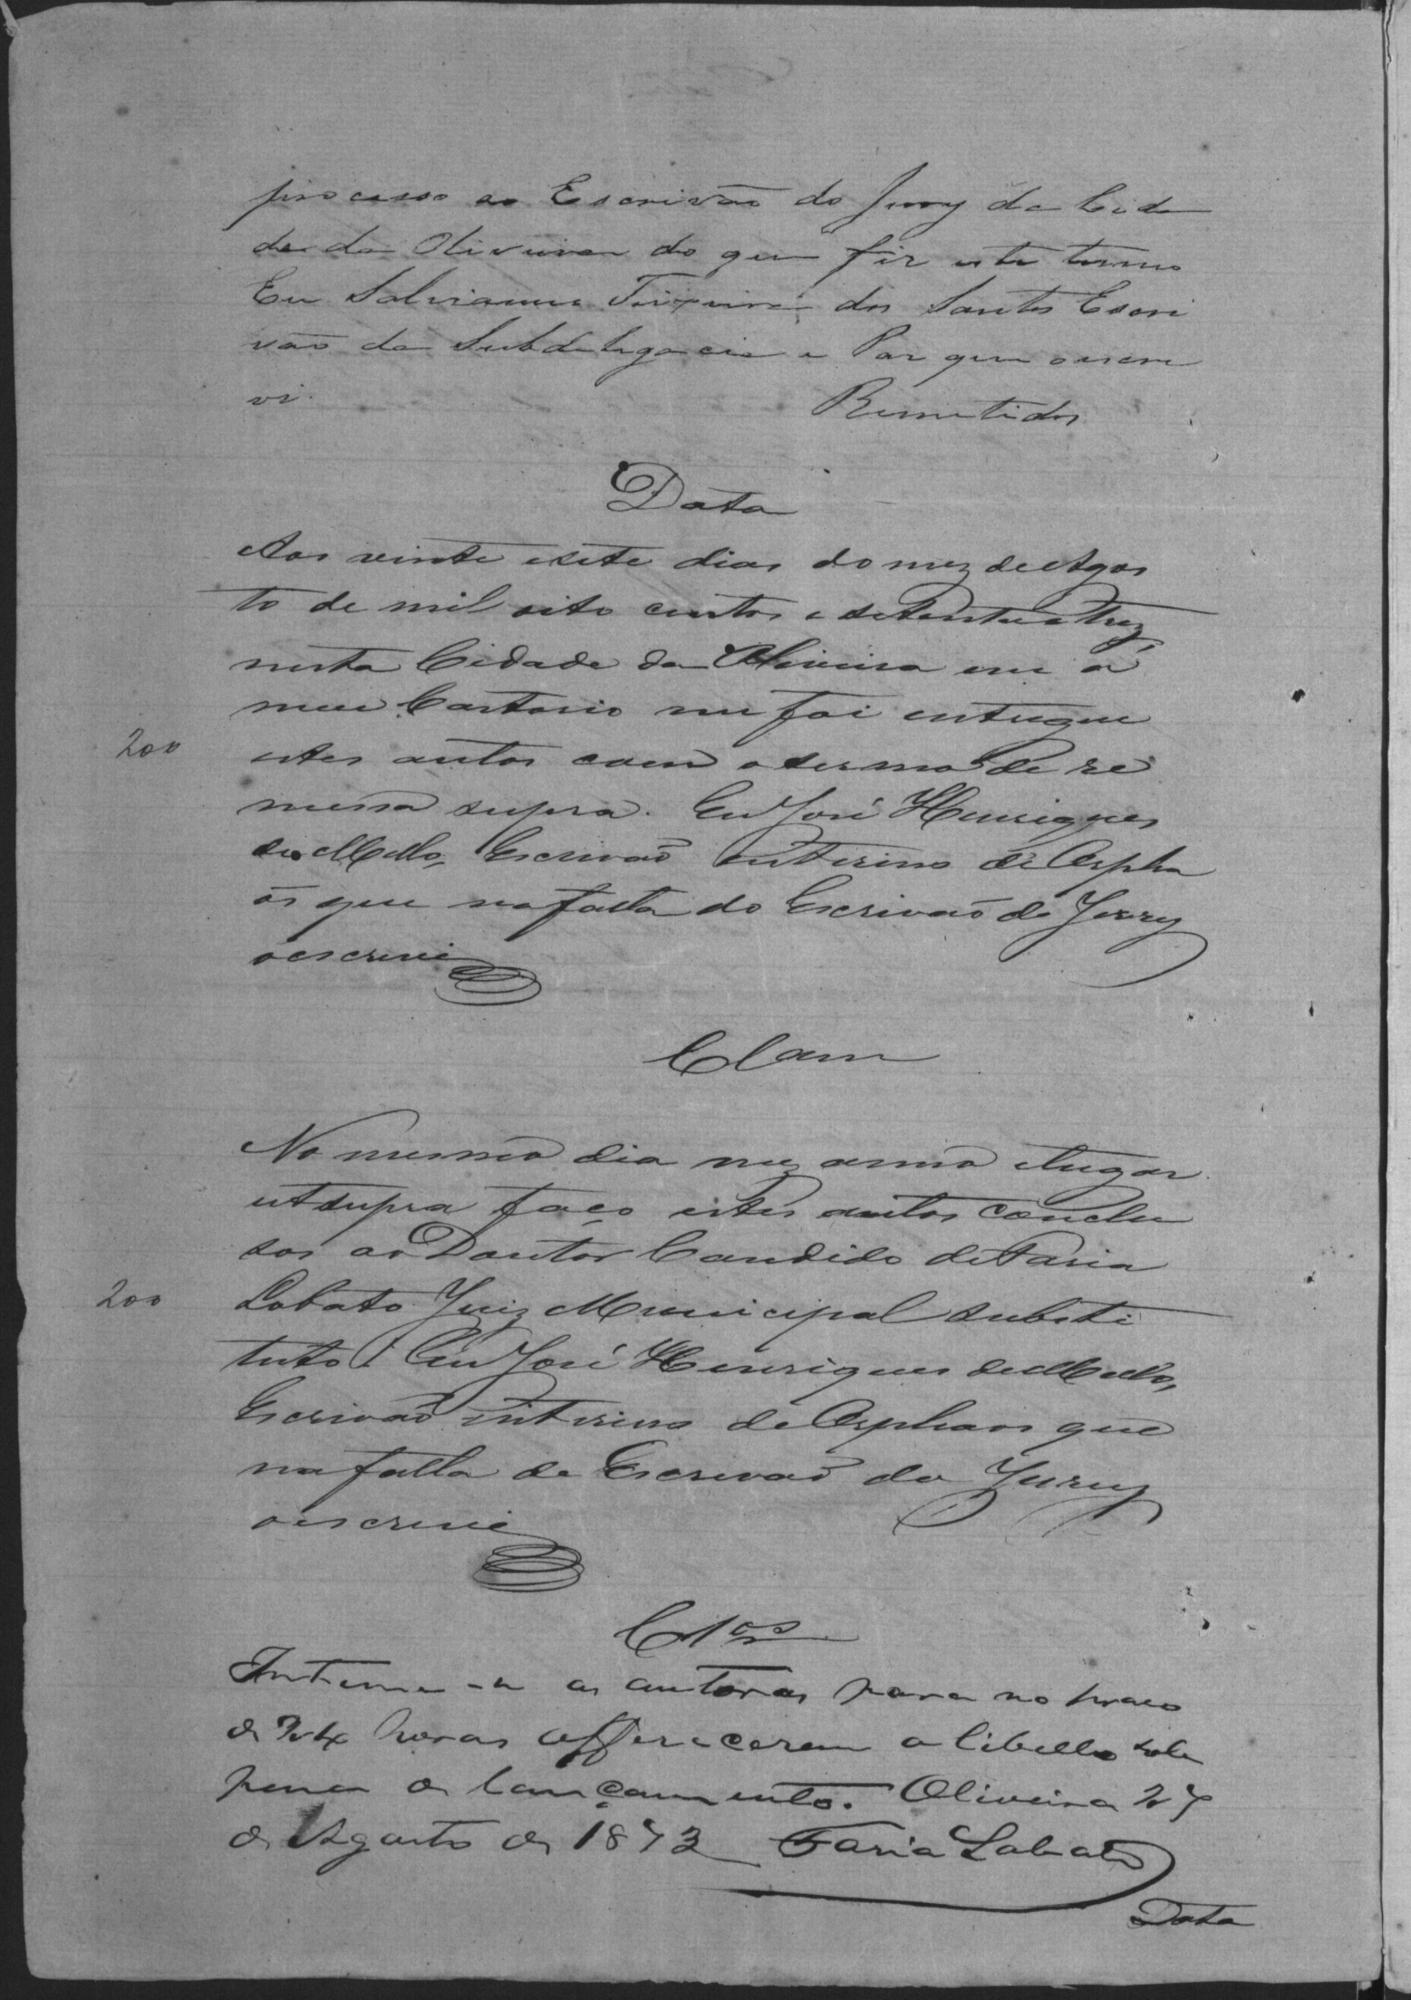 processo ao Escrivão do Jury da Cida
de da Oliveira do que fiz este termo
Eu Salvianno Teixeira dos Santos Escri
vão da Subdelegacia e Paz que o escre
vi.
Remetidos
Data
Aos vinte e sete dias do mez de Agos
to de mil oito centos e setenta e trez,
nesta Cidade da Oliveira em o
meu Cartorio me foi entregue
200
estes autos com o termo de re
messa supra. Eu José Henriques
de Mello, Escrivão interino de Orpha
os que na falta do Escrivão do Jury
o escrevi
Clam
No mesmo dia mez anno e lugar
ut supra faço estes autos conclu
sos ao Doutor Candido de Faria
200
Lobato Juiz Municipal substi
tuto Eu José Henriques de Mello,
Escrivão interino de Orphaos que
na falta de Escrivão do Jury
o escrevi
Clos
Intime-se as autoras para no prazo
de 24 horas offerecerem o libello sob
pena de lançamento. Oliveira 27
de Agosto de 1873 Faria Lobato
Data